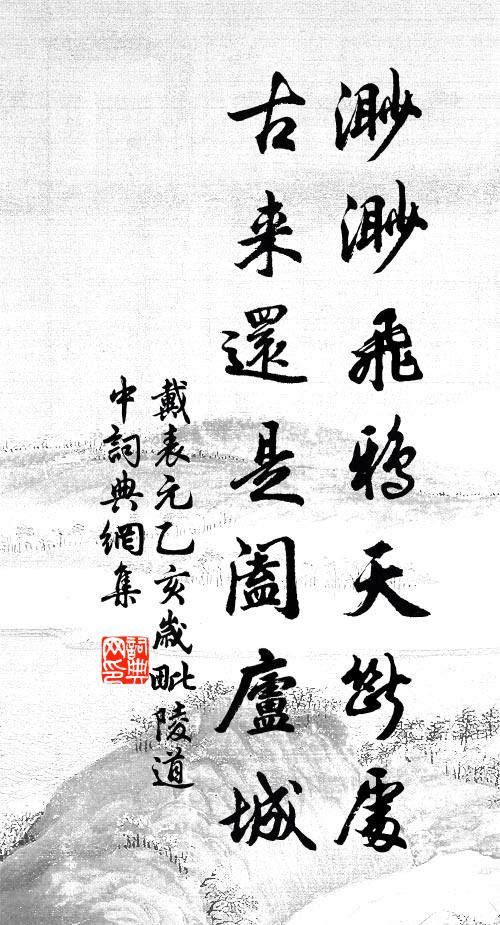 渺渺飛鴉天斷處
古来還是闔廬城
戴表元乙亥歲毗陵道
中詞典網集
詞典网印